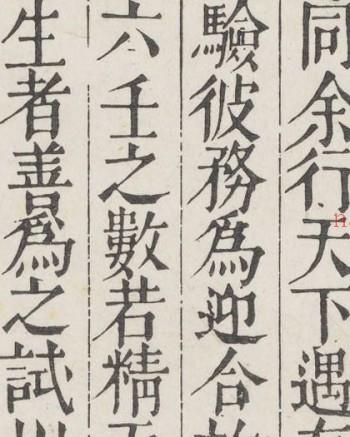 同余行天下遇
驗彼務為迎合
六壬之數若精
生者善爲之試